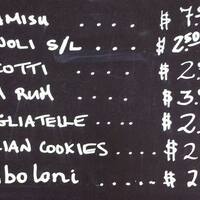 AMISU .... $ 7.5
OLI S/L .... $ 2.50
COTTI .... $ 2
RUM .... $ 3.
GLIATELLE .... $ 2
IAN COOKIES .... $ 2
boloni .... $ 2